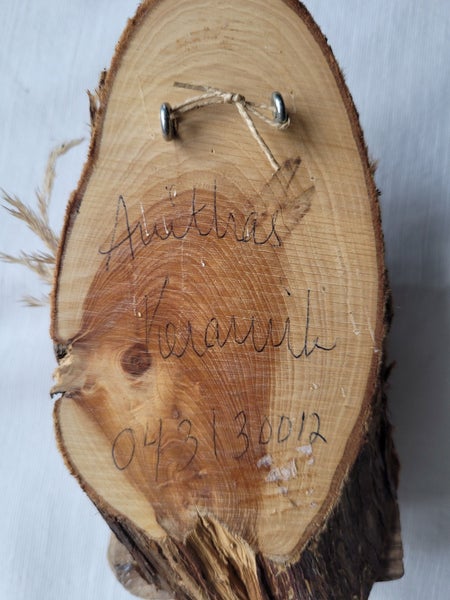 Anithas
Keramik
043130012